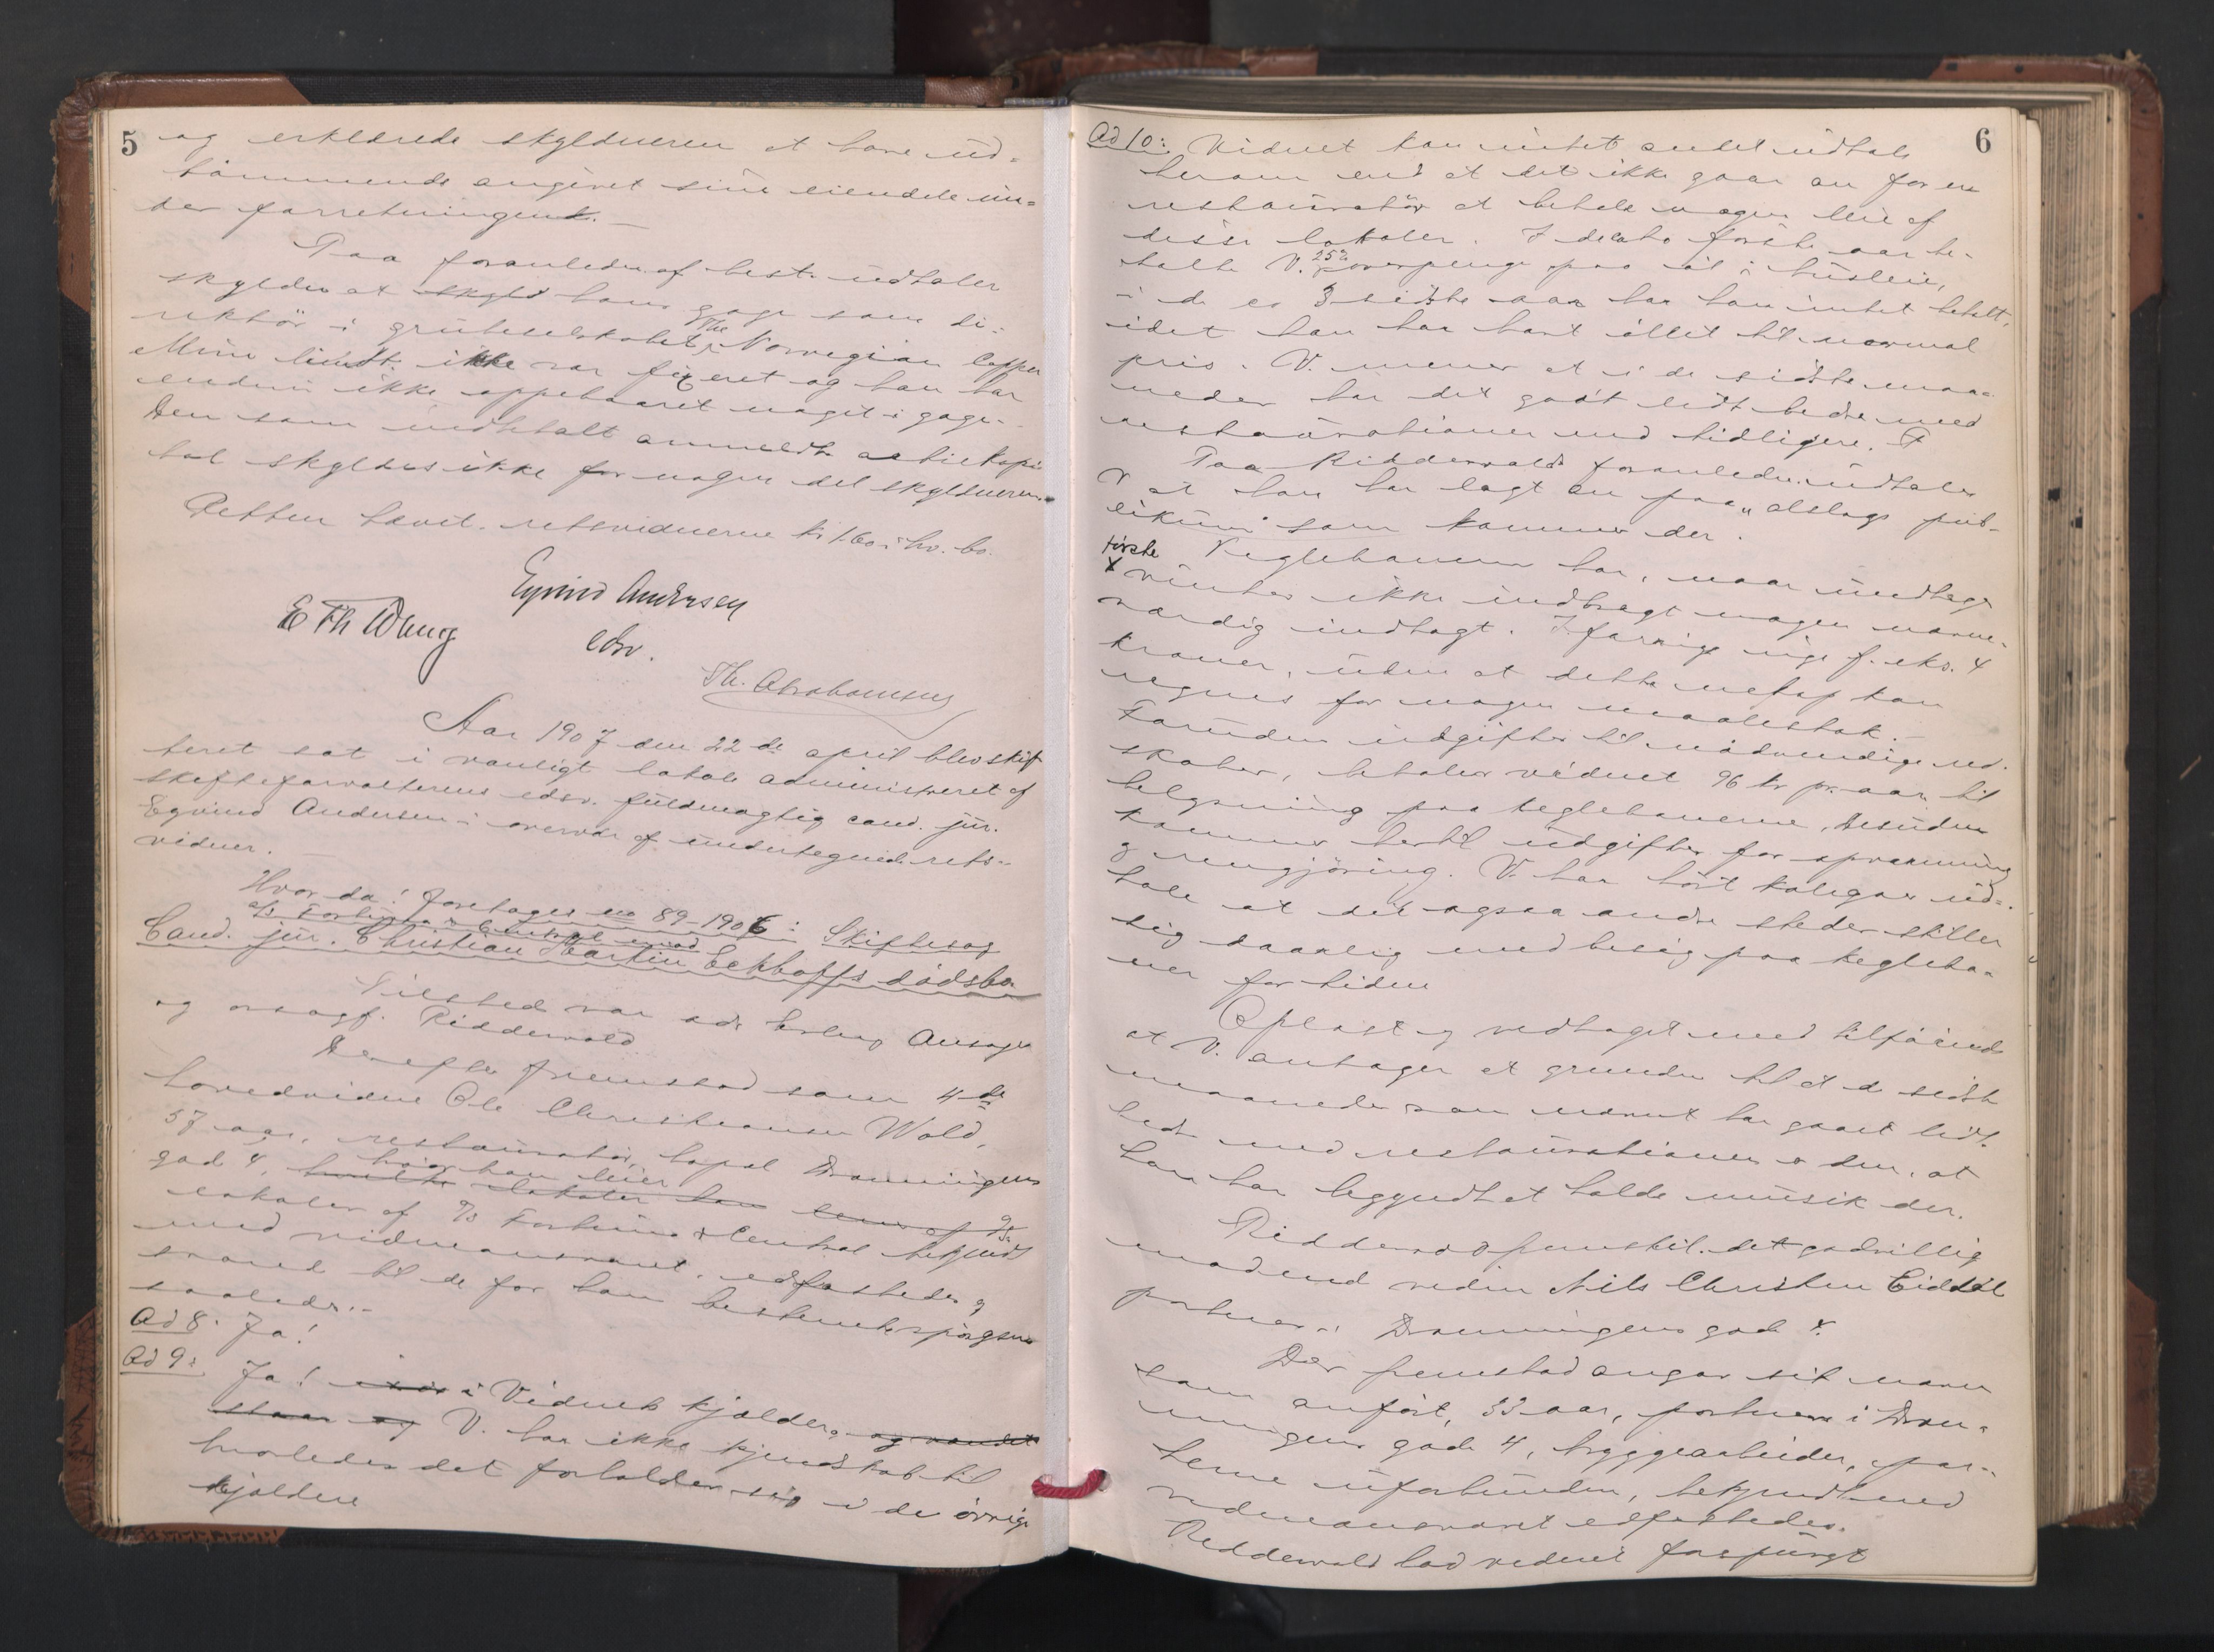 5
og erklærede skyldneren at have ud=
tømmende angivet sine eiendele un=
der forretningen. —
Paa foranledn. af best. udtaler
skyldn. at skyld hans gage som di=
rektør i grubeselskabet The Norwegian Copper
Mine limt. ikke var fixeret og han har
endnu ikke oppebaaret noget i gage.
Den som indbetalt anmeldte actiekapi
tal skyldes ikke for nogen del skyldneren.
Retten hævet. retsvidnerne kr 1.60 i hv. bo.
Eyvind Andersen
E Th Wang
edsv.
Th. Abrahamsen
Aar 1907 den 22de april blev skif
teret sat i vanligt lokale administreret af
skifteforvalterens edsv. fuldmægtig cand. jur.
Eyvind Andersen i overvær af undertegnede rets=
vidner. —
Hvor da! foretages no 89-1906: Skiftesag
a/s Fortuna & Central mod
Cand. jur. Christian Martin Eckhoffs dødsbo
Tilstede var adv. Erling
og orsagf. Ridderwold
Derefter fremstod som 4de
hovedvidne Ole Christiansen Wold,
57 aar, restauratør, bopæl Dronningens
gade 4, hvor han leier
hvilke lokaler han leier af A/S
lokaler af A/S Fortuna & Central bekjendt
med vidneansvaret. edfæstedes og
svared til de for ham bestemte spørgsm.
saaledes. –
Ad 8. Ja!
Ad 9: Ja! i Vidnets kjælder, og vandet
staar og V. har ikke kjendskab til
hvorledes det forholder sig i de øvrige
kjældere
6
Ad 10: Vidnet kan intet andet udtale
herom end at det ikke gaar an for en
restauratør at betale nogen leie af
disse lokaler. I de to første aar be=
talte V. 25% paa øl i husleie,
i de 3 sidste aar har han intet betalt,
idet han har havt øllet til normal
pris. V. mener at i de sidste maa=
neder har det gaat lidt bedre med
restaurationen end tidligere. F
Paa Ridderwolds foranledn. udtaler
V at han har lagt an paa "alslags pub=
likum" som kommer der.
Keglebanen har, naar undtages
første
x vinter ikke indbragt nogen nævne=
værdig indtægt. I forrige uge f. eks. 4
kroner, uden at dette netop kan
regnes for nogen maalestok. –
Foruden udgifter til nødvendige red=
skaber, betaler vidnet 96 kr pr. aar til
belysning paa keglebanerne, desuden
kommer hertil udgifter for opvarmning
og rengjøring. V. har hørt kolegaer ud=
tale at det ogsaa andre steder stiller
sig daarlig med besøg paa kegleba=
ner for tiden
Oplæst og vedtaget med tilføiende
at V. antager at grunden til at de sidste
maaneder som nævnt har gaaet lidt
bedre med restaurationen er den, at
han har begyndt at holde musik der.
Ridderwold fremstil. det godvillig
mødende vidne Nils Christen Eiddal
portner i Dronningens gade 4.
Der fremstod angav sit navn
som anført, 33 aar, portner i Dron=
ningens gade 4, bryggearbeider, par=
terne uforbunden, bekjendt med
vidneansvaret edfæstedes.
Ridderwold bad vidnet forspurgt